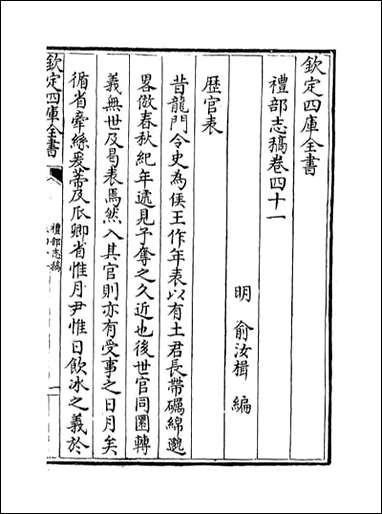 欽定四庫全書
禮部志稿卷四十一
明 俞汝楫 編
歴官表
昔龍門令史為侯王作年表以有土君長帶礪綿邈
畧倣春秋紀年遞見予奪之久近也後世官同圜轉
義無世及曷表焉然入其官則亦有受事之日月矣
循省牽絲爰蓄及瓜卿省惟月尹惟日飲冰之義於
欽定四庫全書
禮部志稿